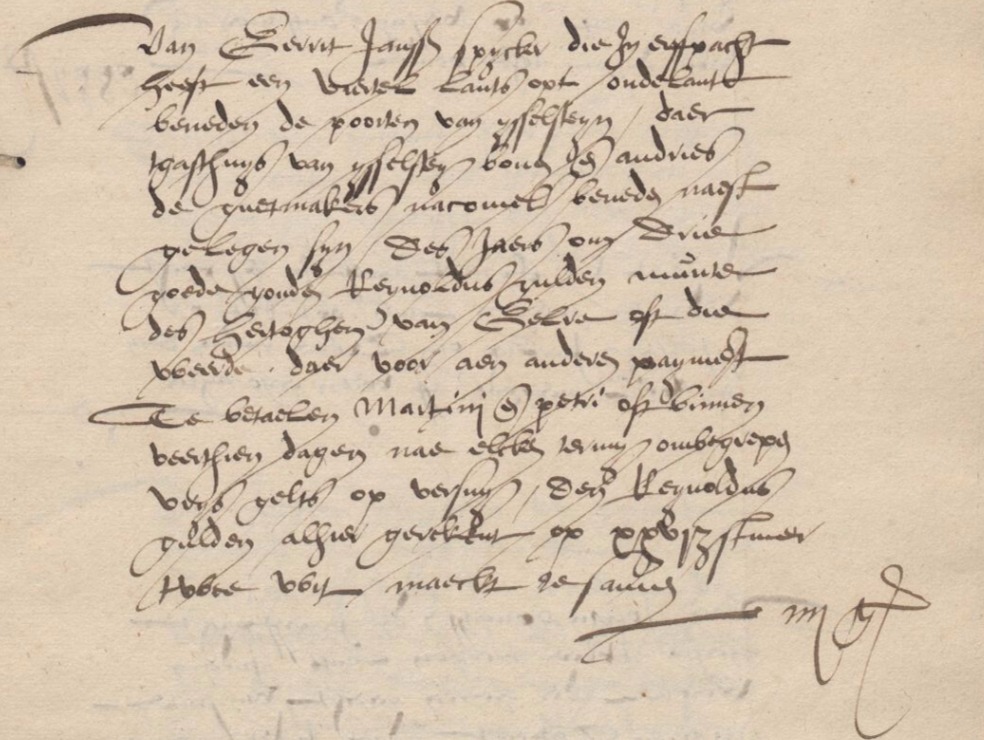 Van Gerrit Janss spycker die In erfpacht
heeft een viertel lants opt ondelant
beneden de poorten van ysselsteyn / daer
tgasthuys van ysselsteyn boven en andries
de guetmakers naecomel beneden naest
gelegen syn / Des Jaers om Drie
goede gouden Reynoldus gulden munte
des hertoghen van Gelre oft die
weerde daer voor aen anderen payment
Te betaelen Martini en petri oft binnen
veerthien dagen nae elcken termijn onbegrepen
op versuym / Den Reynoldus
gulden alhier gereckent op xxviz stuver
maeckt te samen
iiii